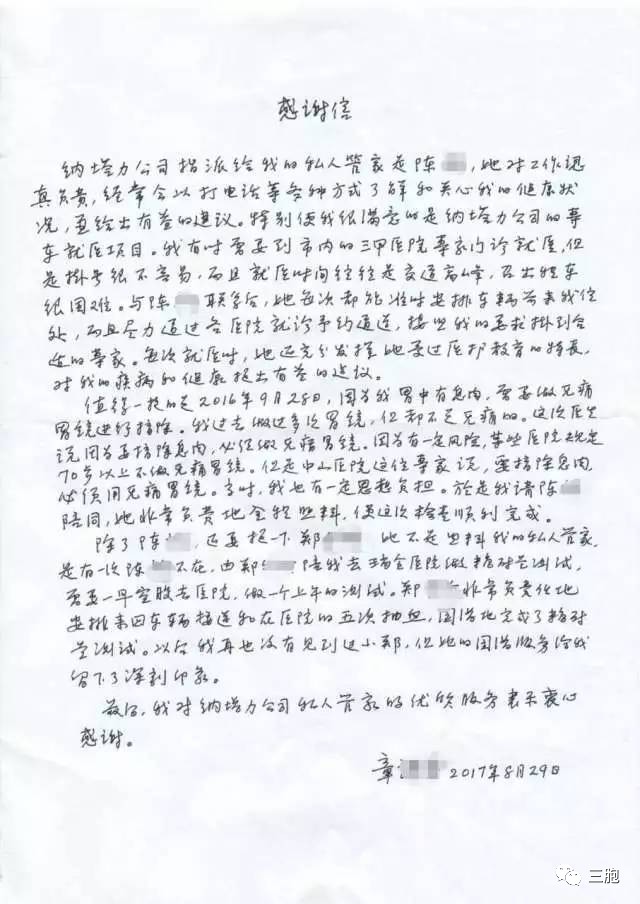 感谢信
纳塔力公司指派给我的私人管家是陈,她对工作认
真负责,经常会以打电话等各种方式了解和关心我的健康状
况,并给出有益的建议。特别使我很满意的是纳塔力公司的专
车就医项目。我有时需要到市内的三甲医院专家门诊就医,但
是掛号很不容易,而且就医时间往往是交通高峰,叫出租车
很困难。与陈联系后,她每次都能准时安排车辆前来我住
处,而且尽力通过各医院就诊予约通道,按照我的要求掛到合
适的专家。每次就医时,她还充分发挥她受过医护教育的特长,
对我的疾病和健康提出有益的建议。
值得一提的是2016年9月28日,因为我胃中有息肉,需要做无痛
胃镜进行摘除。我过去做过多次胃镜,但都不是无痛的。这次医生
说因为要摘除息肉,必须做无痛胃镜。因为有一定风险,某些医院规定
70岁以上不做无痛胃镜。但是中山医院这位专家说,要摘除息肉
必须用无痛胃镜。当时,我也有一定思想负担。於是我请陈
陪同,她非常负责地全程照料,使这次检查顺利完成。
除了陈,还要提一下郑 她不是照料我的私人管家,
是有一次陈不在,由郑陪我去瑞金医院做糖耐量测试,
需要一早空腹去医院,做一个上午的测试。郑非常负责任地
安排来回车辆接送和在医院的五次抽血,圆满地完成了糖耐
量测试。以后我再也没有见到过小郑,但她的圆满服务给我
留下了深刻印象。
最后,我对纳塔力公司私人管家的优质服务表示衷心
感谢。
章 2017年8月29日
三胞